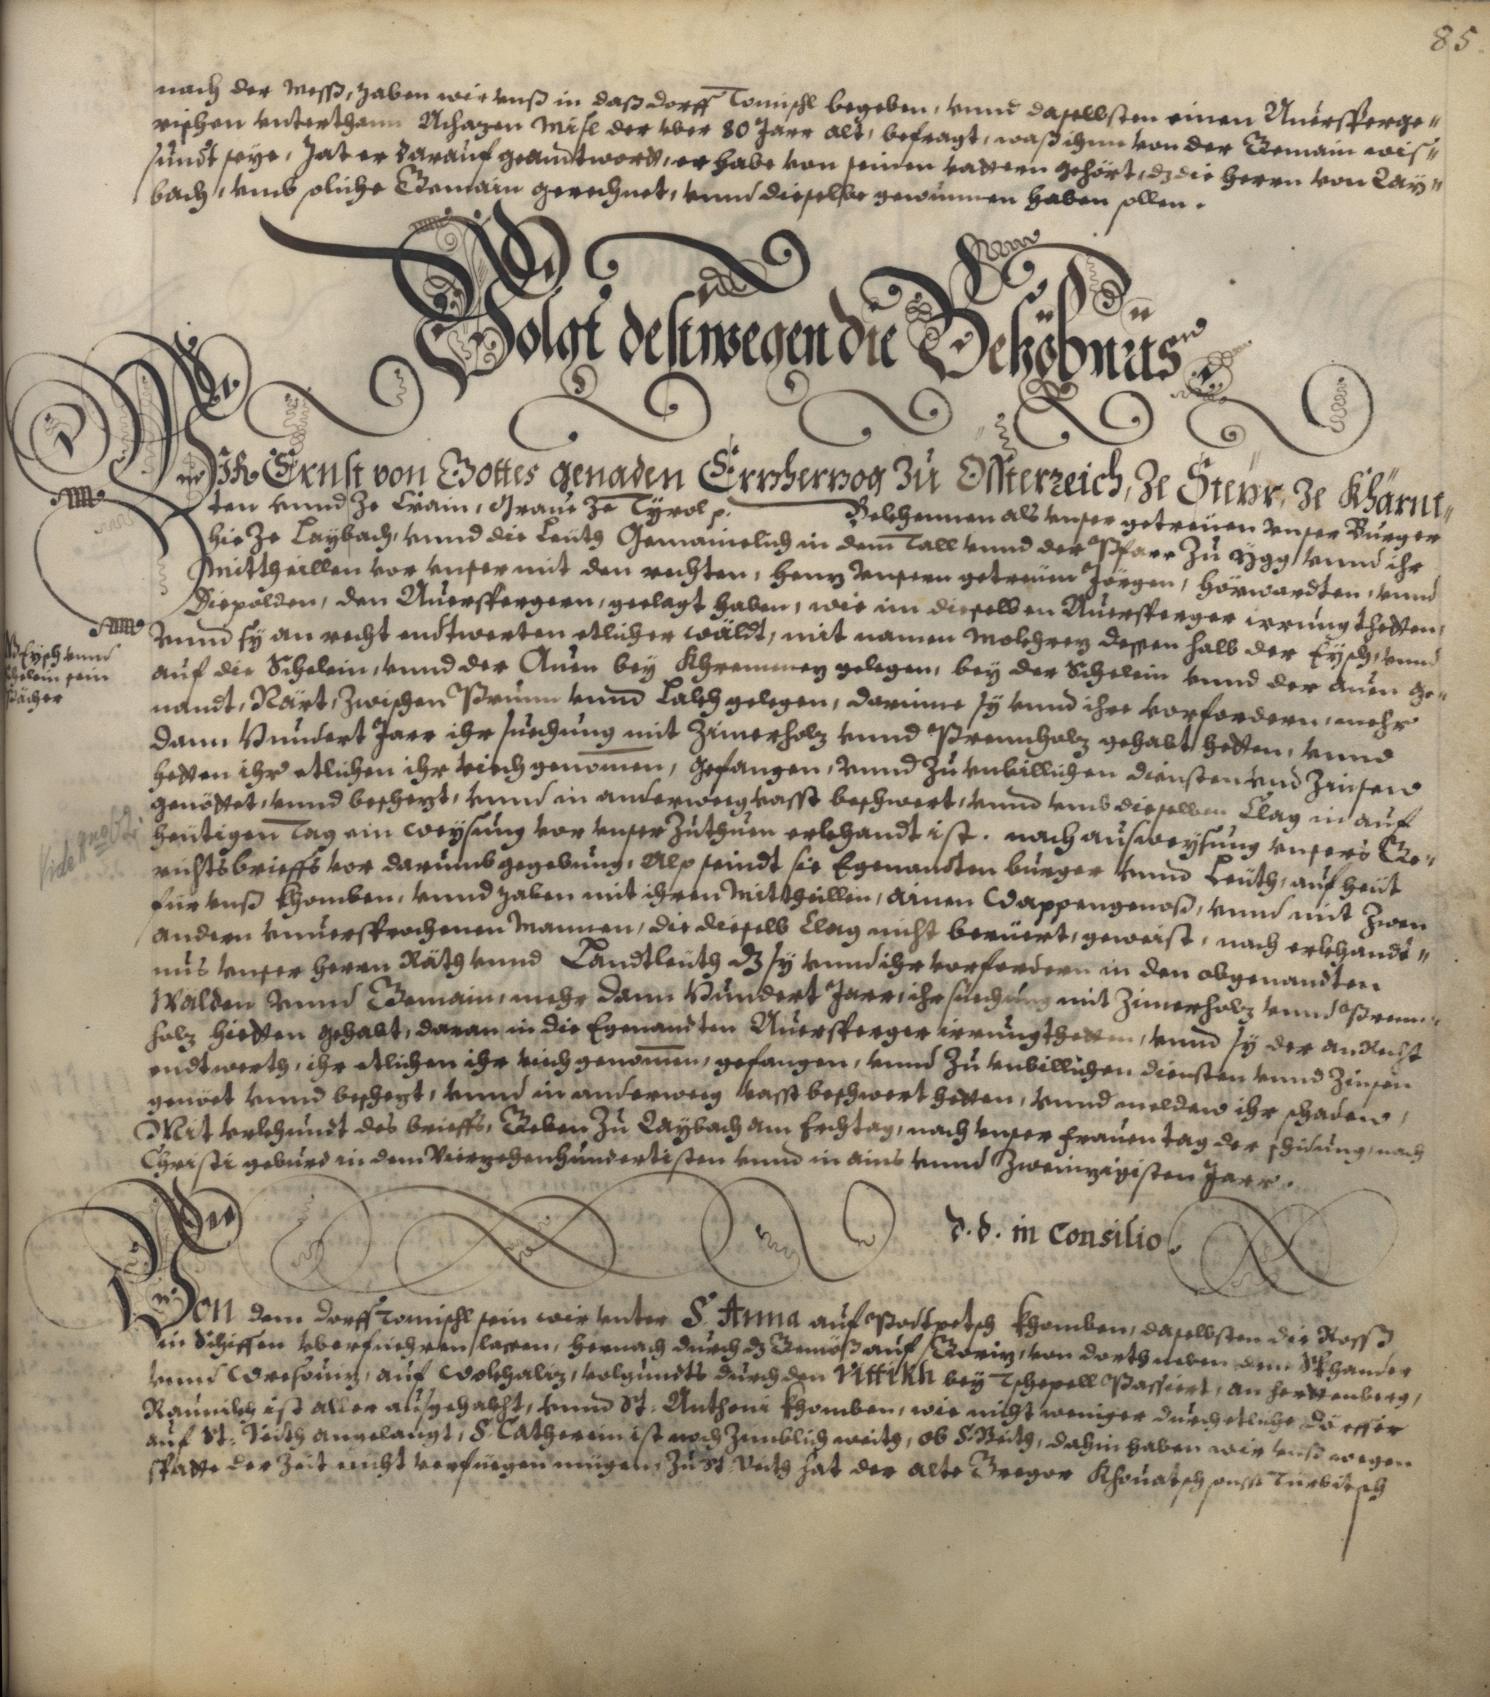 85
nach der Mess, haben wir unß in daß dorff Tomischl begeben, unnd daselbsten einen Auersperge=
rischen unterthann Achazen Mise der uber 80 Jarr alt, befragt, waß ihme von der Gemain wis=
sundt seye, hat er darauf geantwortt, er habe von seinen vattern gehört, dz die herrn von Lay=
bach, umb soliche Gemain gerechnet, unnd dieselbe gewunnen haben sollen.
Volgt destwegen die Beköbnus
Wir Ernst von Gottes genaden Erzherzog zu Ossterreich, ze Steyr, ze Khärnt=
ten unnd ze Crain, Grave ze Tyrol p. Bekhennen als unser getreuen unser Burger
hie ze Laybach, unnd die Leuth Gemainelich in dem Tall unnd der Pfarr zu Ygg unnd ihr
Mittheillen vor unser mit den rechten, henz unsern getreuen Jörgen, hörwardten, unnd
Diepolden, den Auerspergern, geclagt haben, wie im dieselben Auersperger irrung thetten,
unnd sy an recht endtwerten etlicher wäldt, mit namen Mokhrez dessen halb der Eysch, unnd
auf die Schelein, unnd der Auen bey Khremmez gelegen, bey der Schelein unnd der auen ge=
nandt, Kärt, zwischen Prunn unnd Lakh gelegen, darinne sy unnd ihre vorfordern, mehr
dann Hundert Jarr ihr suechung mit Zimerholz unnd Prennholz gehabt hetten, unnd
hetten ihr etlichen ihr viech genomen, gefangen, unnd zu unbillichen diensten und Zinsen
genöttet, unnd beschezt, unnd in anderweeg vasst beschwert, unnd umb dieselben Clag in auf
heutigen Tag ein weysung vor unser zuthuen erkhandt ist. nach ausweysung unsers Ge=
richtsbrieffs vor darumb gegebung, Also seindt sie Egenandten burger unnd Leuth, auf heut
für unß khomben, unnd haben mit ihren Mittheillen, ainen Wappengenoß, unnd mit zwen
andern unversprochenen Mannen, die dieselb Clag nicht berüert, geweist, nach erkhandt=
nus unser herrn Räth unnd Landtleuth dz sy unnd ihr vorfordern in den obgenandten
Wälden unnd Gemain, mehr dann Hundert Jarr, ihr suechung mit Zimerholz unnd Prenn=
holz hietten gehabt, daran in die Egenandten Auersperger irrung thetten, unnd sy der an Recht
endtwerth, ihr etlichen ihr viech genomen, gefangen, unnd zu unbillichen diensten unnd Zinsen
genöet unnd beschezt, unnd in anderweeg vasst beschwert hetten, unnd melden ihr schaden,
Mit Urkhundt des brieffs, Geben zu Laybach am Erchtag, nach unser frauen tag der schidung, nach
Christi geburd in dem Vierzehenhundertisten unnd in ains unnd Zweinzigisten Jarr.
d. d. in Consilio.
Von dem dorff Tomischl sein wir unter S. Anna auf Podtpetsch khomben, daselbsten die Ross
in Schiffen uberfuehren lassen, hernach durch dz Gemöß auf Goriz, von dorth neben dem
unnd auf volgundts durch den Vittikh bey Tschepell Passiert, an herttenberg,
ist aller ausgehakht, unnd St. Anthoni khomben, wie nicht weniger durch etliche dörffer
auf St. Veith angelangt, S. Catherein ist noch zimblich weith, ob S. Veith, dahin haben wir unß wegen
spatte der Zeit nicht verfüegen mügen, zu St. Veith hat der alte Gregor Khovatsch sonst Turbitsch
Eysch unnd
Schelein sein
Pächer
Vide